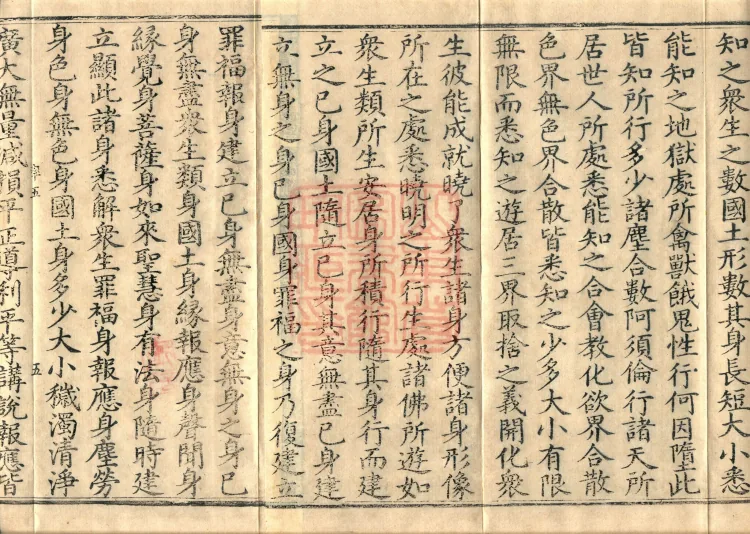 知之衆生之數國土形數其身長短大小悉
能知之地獄處所禽獸餓鬼性行何因墮此
皆知所行多少諸塵合數阿須倫行諸天所
居世人所處悉能知之合會教化欲界合散
色界無色界合散皆悉知之少多大小有限
無限而悉知之遊居三界取捨之義開化衆
生彼能成就曉了衆生諸身方便諸身形像
所在之處悉曉明之所行生處諸佛所遊如
衆生類所生安居身所積行隨其身行而建
立之已身國土隨立已身其意無盡已身建
立無身之身已身國身罪福之身乃復建立
罪福報身建立已身無盡身意無身之身已
身無盡衆生類身國土身緣報應身聲聞身
緣覺身菩薩身如來聖慧身有法身隨時建
立顯此諸身悉解衆生罪福身報應身塵勞
身色身無色身國土身多少大小穢濁清淨
廣大無量減損平正導利平等講說報應皆
五